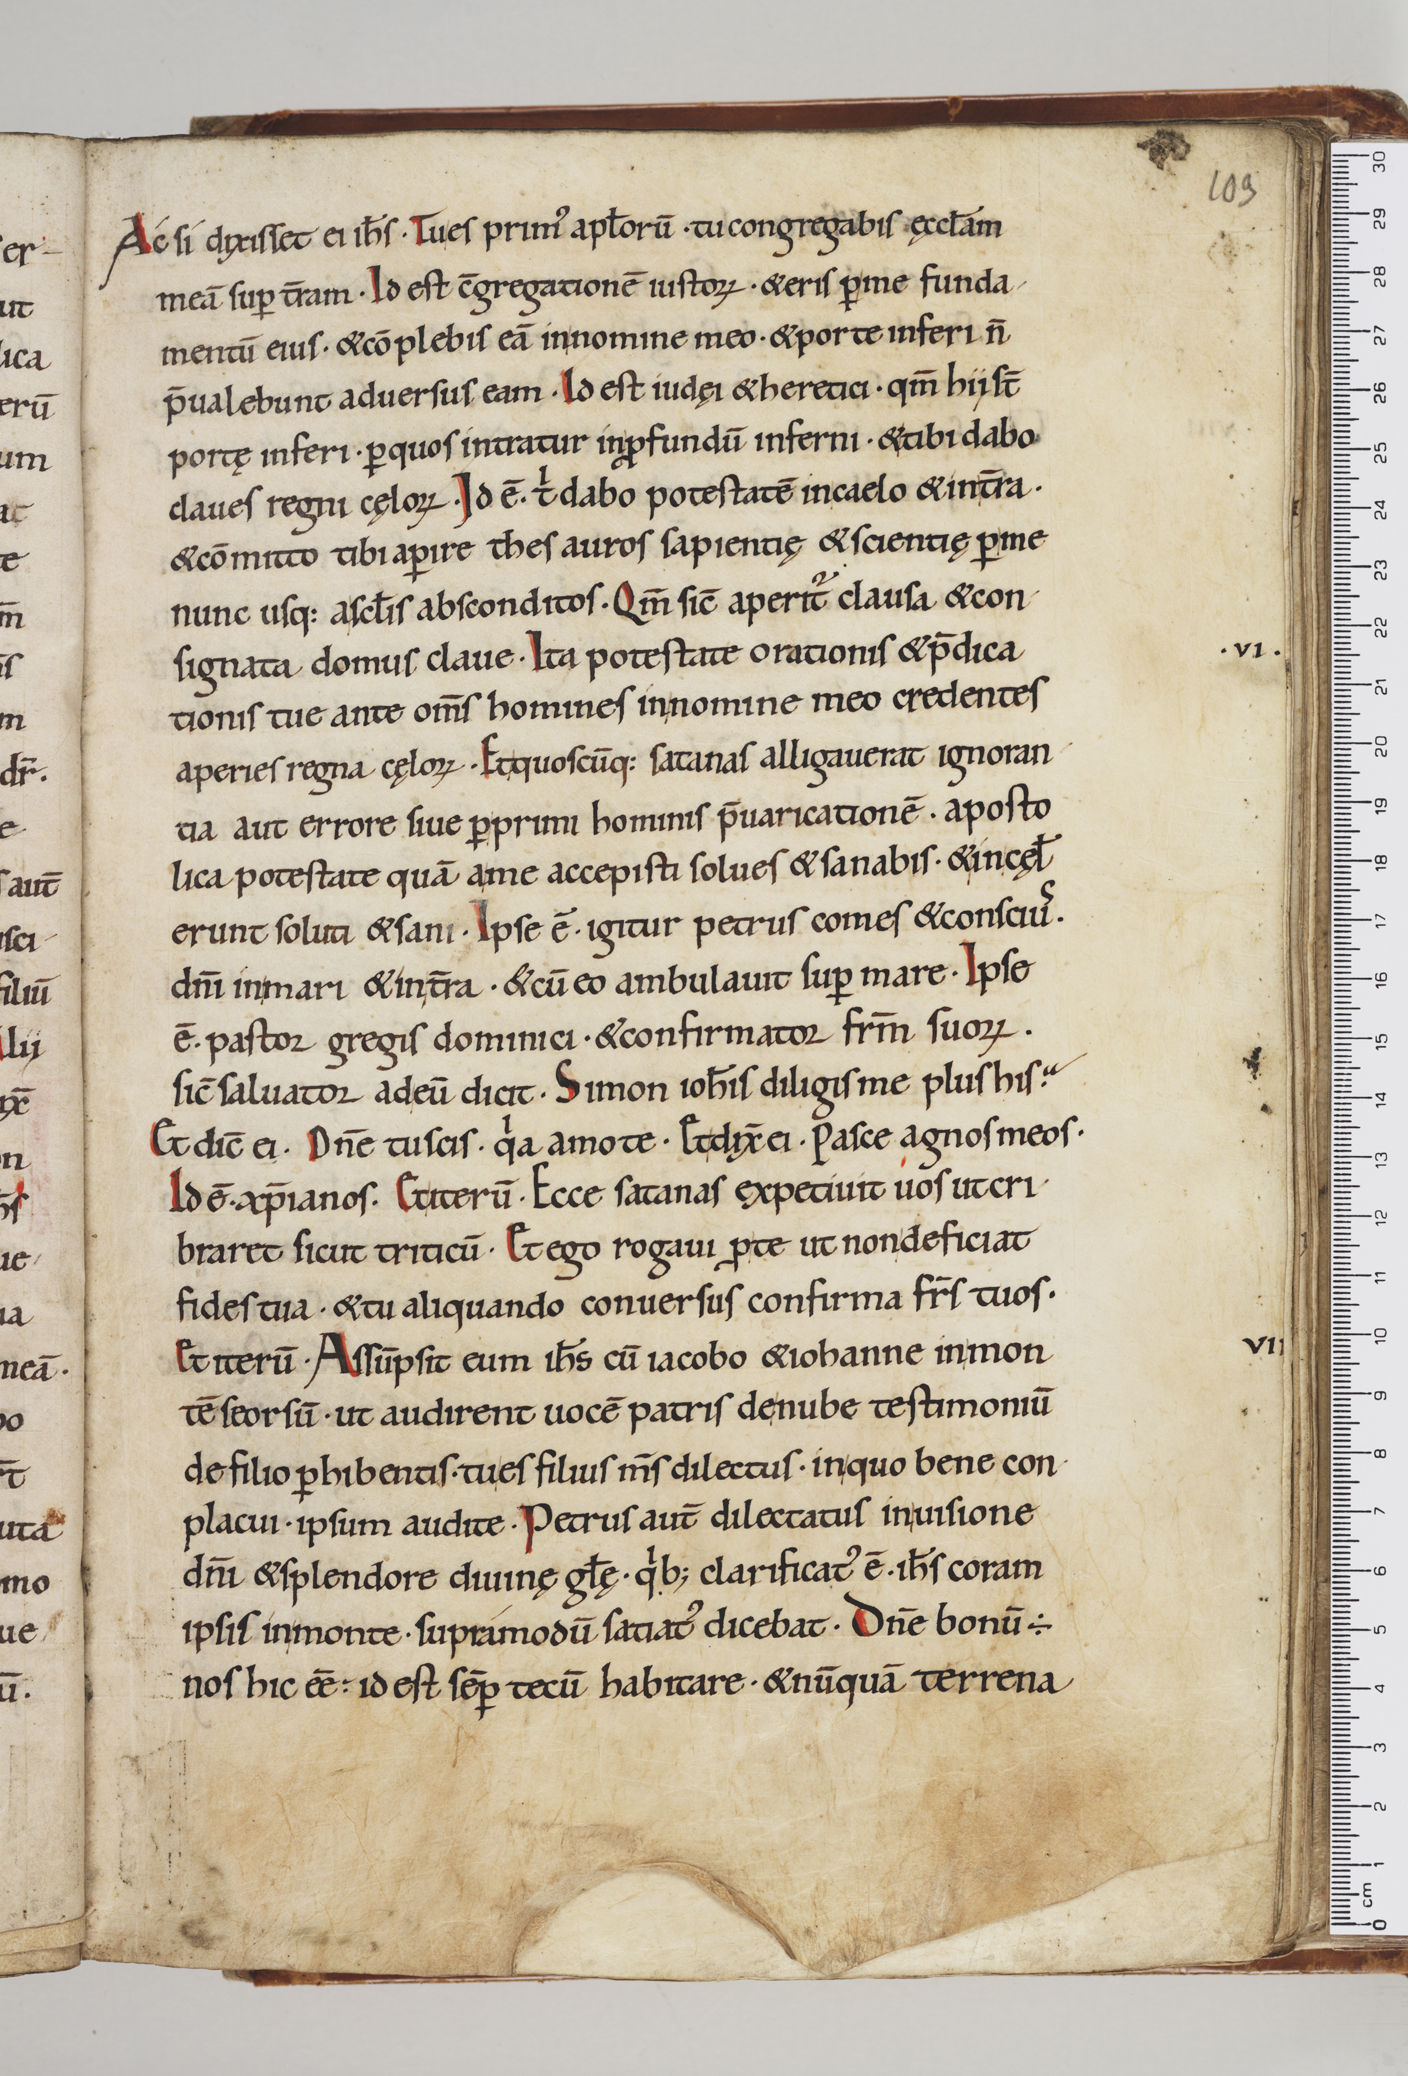 109
Ac si dixisset ei ih̅s · Tu es prim᾽ apl̅orū · tu congregabis ęccl̅am
meā sup̲ t̅ram · Id est c̅gregationē iustoꝝ · & eris p̲ me funda-
mentū eius · & cōplebis eā in nomine meo · & porte inferi n̅
p̅ualebunt aduersus eam · Id est iudęi & heretici · qm̅ hii st̅
portę inferi · ꝑ quos intratur in ꝓfundū inferni · & tibi dabo
claues regni cęloꝝ · Id ē · tͥ dabo potestatē in caelo & in t̅ra ·
& cōmitto tibi aꝑire thesauros sapientię & scientię ꝑ me
nunc usq: a scl̅is absconditos · Qm̅ sic̅ aperit᷑ clausa & con-
signata domus claue · Ita potestate orationis & p̅dica
tionis tue ante om̅s homines in nomine meo credentes
aperies regna cęloꝝ · Et quoscūq: satanas alligauerat ignoran-
tia aut errore siue ꝑ primi hominis p̅uaricationē · aposto
lica potestate quā a me accepisti solues & sanabis · & in cęl̅
erunt soluti & sani · Ipse ē · igitur petrus comes & consciuˢ ·
dn̅i in mari & in t̅ra · & cū eo ambulauit suꝑ mare · Ipse
ē · pastor gregis dominici · & confirmator frm̅ suoꝝ ·
sic̅ saluator ad eū dicit · Simon ioh̅is diligis me plus his ·
Et dic̅ ei · Dn̅e tu scis · qͥa amo te · Et dix̅ ei · Pasce agnos meos ·
Id ē · xp̅ianos · Et iterū · Ecce satanas expetiuit uos ut cri-
braret sicut triticū · Et ego rogaui ꝓ te ut non deficiat
fides tua · & tu aliquando conuersus confirma fr̅s tuos ·
Et iterū · Assūpsit eum ih̅s cū iacobo & iohanne in mon
tē seorsū · ut audirent uocē patris de nube testimoniū
de filio ꝑhibentis · tu es filius m̅s dilectus · in quo bene con-
placui · ipsum audite · Petrus aut̅ dilectatus in uisione
dn̅i & splendore diuinę gl̅ę · qͥb; clarificat᾽ ē · ih̅s coram
ipsis in monte · supra modū satiat᾽ dicebat · Dn̅e bonū ÷
nos hic ēē : id est sēꝑ tecū habitare · & nūquā terrena
· VI ·
VII